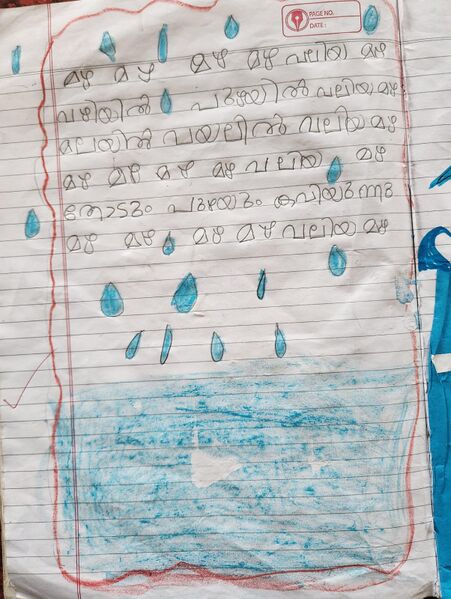 PAGE NO.
DATE:
മഴ മഴ മഴ മഴ വലിയ മഴ
വഴിയിൽ പുഴയിൽ വലിയ മഴ
മലയിൽ വയലിൽ വലിയ മഴ
മഴ മഴ മഴ മഴ വലിയ മഴ
തോടും പുഴയും കവിയുന്നു
മഴ മഴ മഴ മഴ വലിയ മഴ